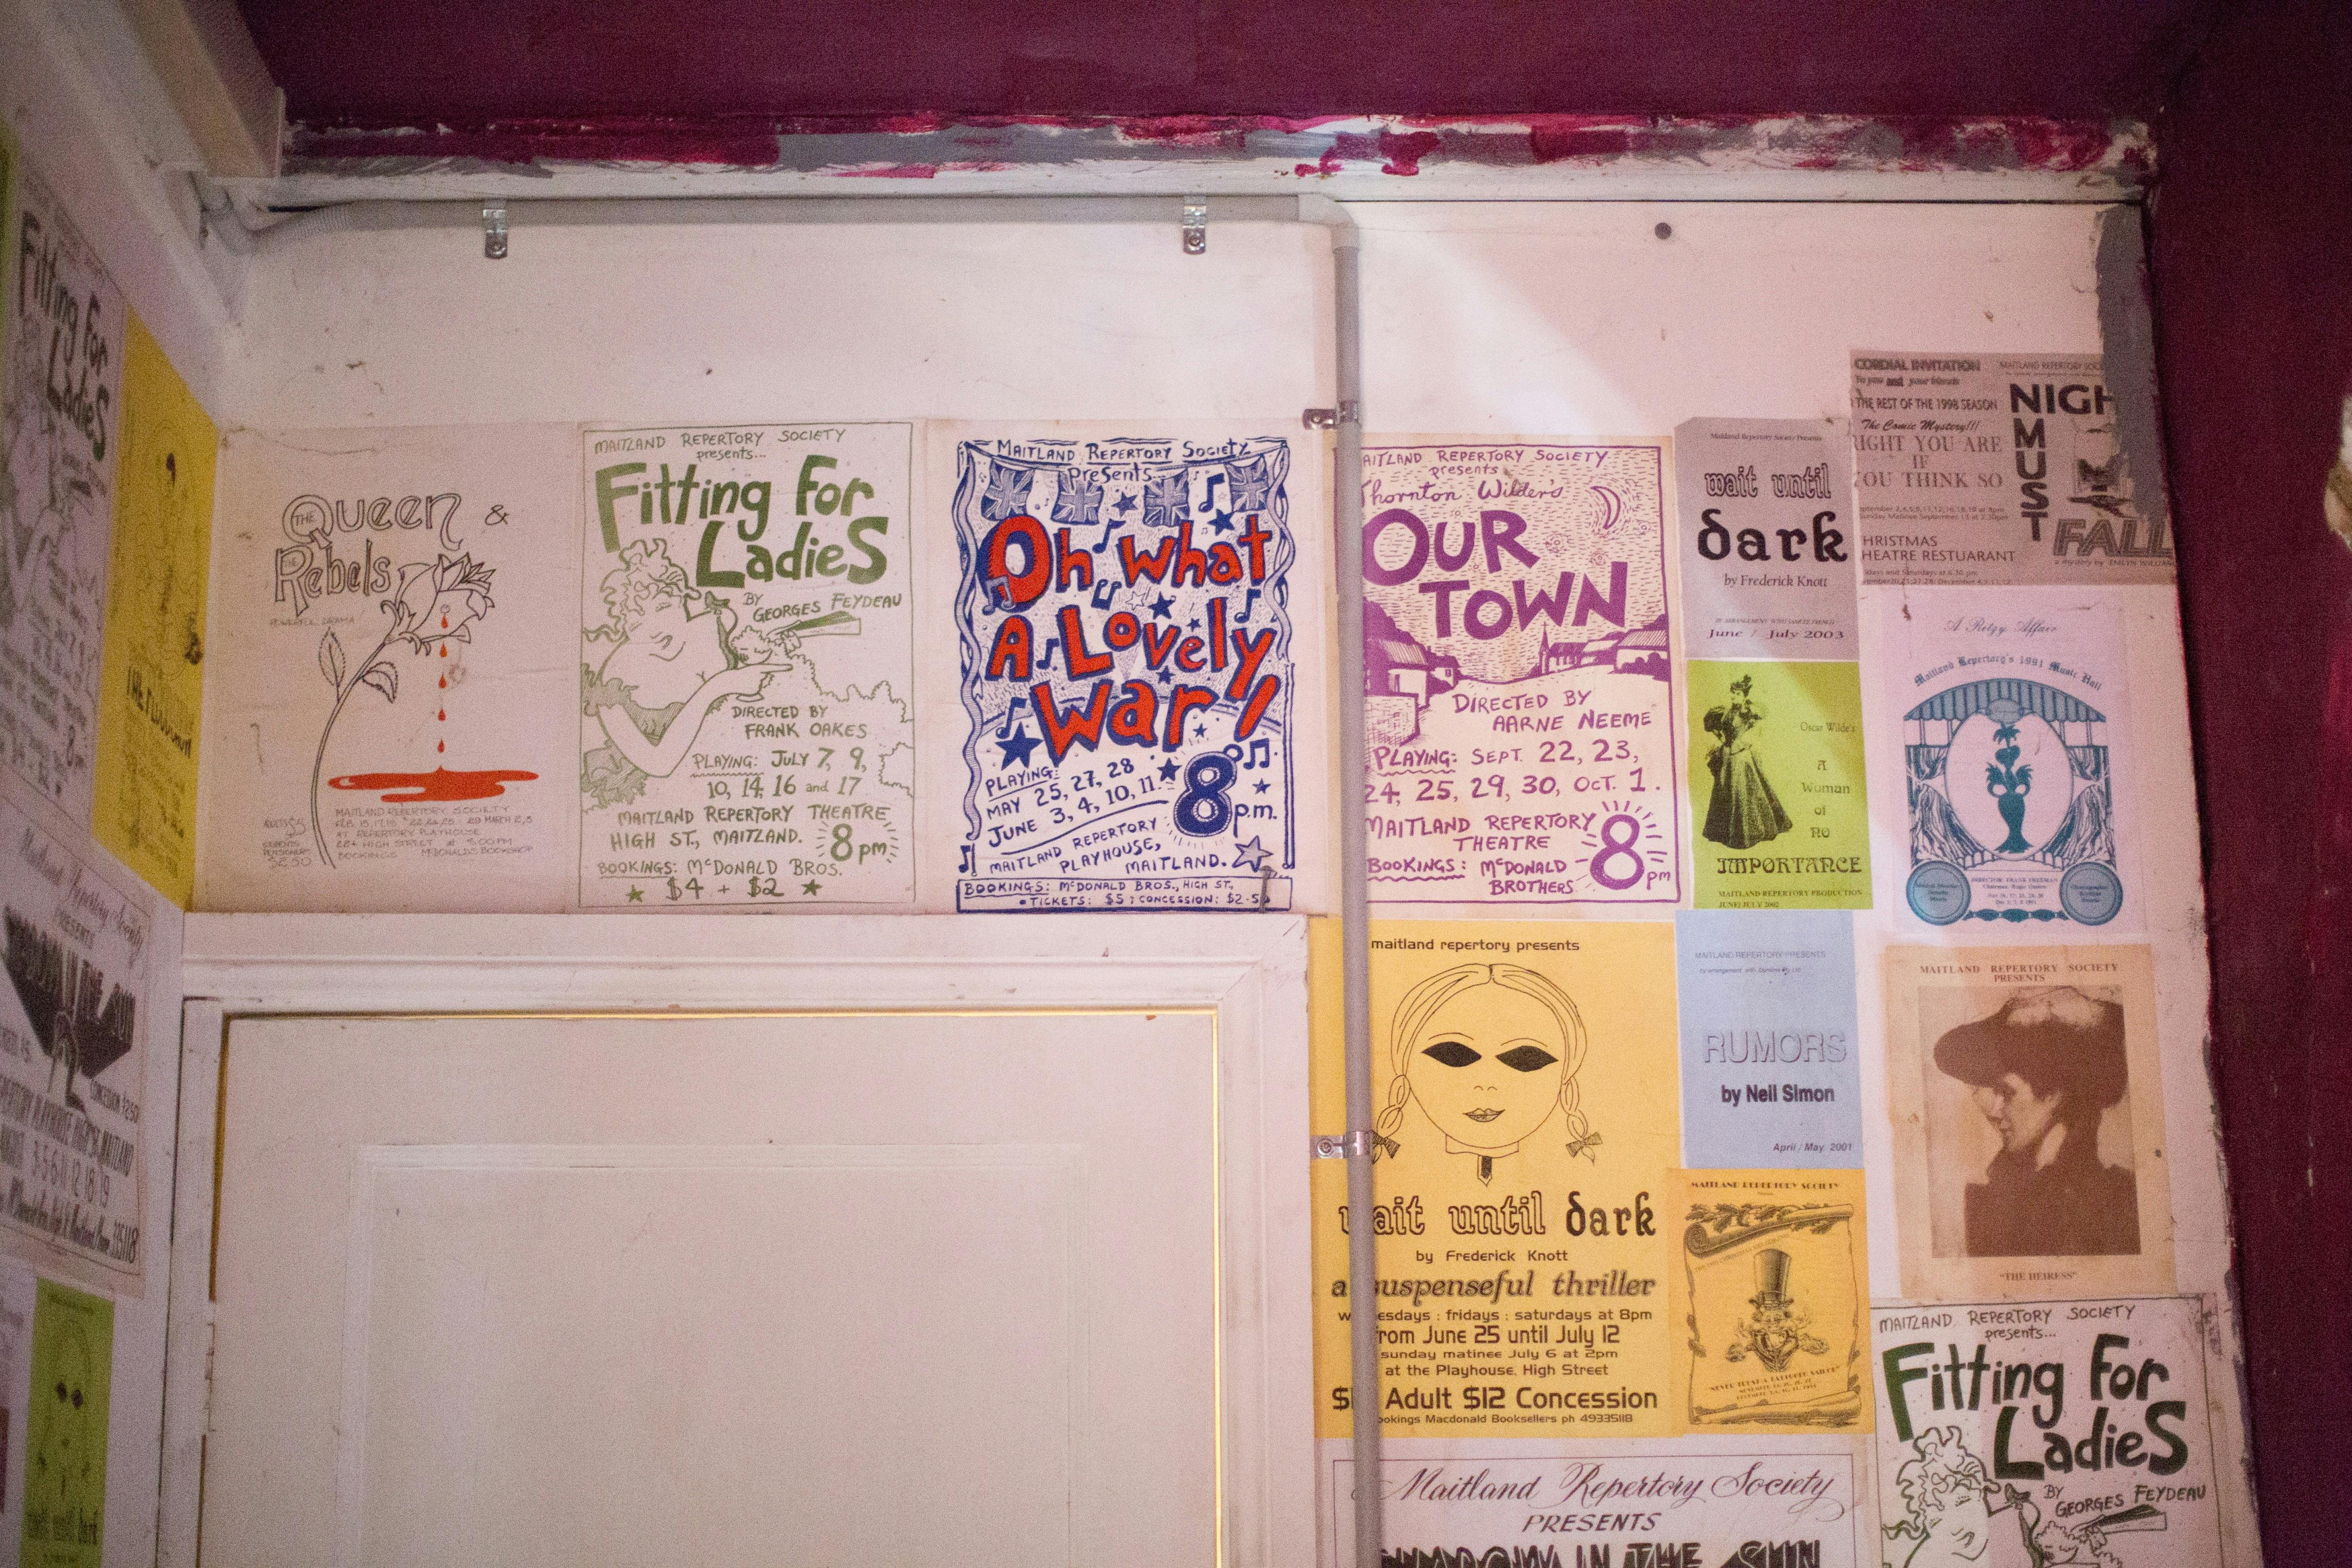 THE QUEEN &
THE Rebels
POWERFUL DRAMA
MAITLAND REPERTORY SOCIETY
AT REPERTORY PLAYHOUSE
HIGH STREET
BOOKINGS McDONALDS BOOKSHOP
MAITLAND REPERTORY SOCIETY
presents...
Fitting For
LadieS
BY
GEORGES FEYDEAU
DIRECTED BY
FRANK OAKES
PLAYING: JULY 7, 9,
10, 14, 16 and 17
MAITLAND REPERTORY THEATRE
HIGH ST., MAITLAND.
8pm
BOOKINGS: McDONALD BROS.
$4 + $2
MAITLAND REPERTORY SOCIETY
Presents
Oh what
A Lovely
War!
PLAYING:
MAY 25, 27, 28
JUNE 3, 4, 10, 11.
8p.m.
MAITLAND REPERTORY
PLAYHOUSE,
MAITLAND.
BOOKINGS: McDONALD BROS., HIGH ST.
TICKETS: $5; CONCESSION: $2.5
AITLAND REPERTORY SOCIETY
presents
Thornton Wilder's
OUR
TOWN
DIRECTED BY
AARNE NEEME
PLAYING: SEPT. 22, 23,
24, 25, 29, 30, OCT. 1.
MAITLAND REPERTORY
THEATRE
8pm
BOOKINGS: McDONALD
BROTHERS
Maitland Repertory Society Presents
wait until
dark
by Frederick Knott
June / July 2003
CORDIAL INVITATION
To you and your friends
THE REST OF THE 1998 SEASON
The Comic Mystery!!!
RIGHT YOU ARE
IF
YOU THINK SO
HRISTMAS
HEATRE RESTUARANT
MAITLAND REPERTORY SOC
NIGH
MUST
FALL
a mystery by EMLYN WILLIAM
Oscar Wilde's
A
Woman
of
No
IMPORTANCE
MAITLAND REPERTORY PRODUCTION
JUNE/ JULY 2002
A Ritzy Affair
Maitland Repertory's 1991 Music Hall
DIRECTOR: FRANK FREEMAN
maitland repertory presents
wait until dark
by Frederick Knott
a suspenseful thriller
esdays : fridays : saturdays at 8pm
from June 25 until July 12
sunday matinee July 6 at 2pm
at the Playhouse, High Street
Adult $12 Concession
ookings Macdonald Booksellers ph 49335118
MAITLAND REPERTORY PRESENTS
RUMORS
by Neil Simon
April / May 2001
MAITLAND REPERTORY SOCIETY
MAITLAND REPERTORY SOCIETY
PRESENTS
"THE HEIRESS"
MAITLAND REPERTORY SOCIETY
presents...
Fitting For
LadieS
BY
GEORGES FEYDEAU
Maitland Repertory Society
PRESENTS
IN THE SUN
Fitting For
Ladies
Maitland Repertory Society
PRESENTS
IN THE SUN
HIGH ST. MAITLAND
335118